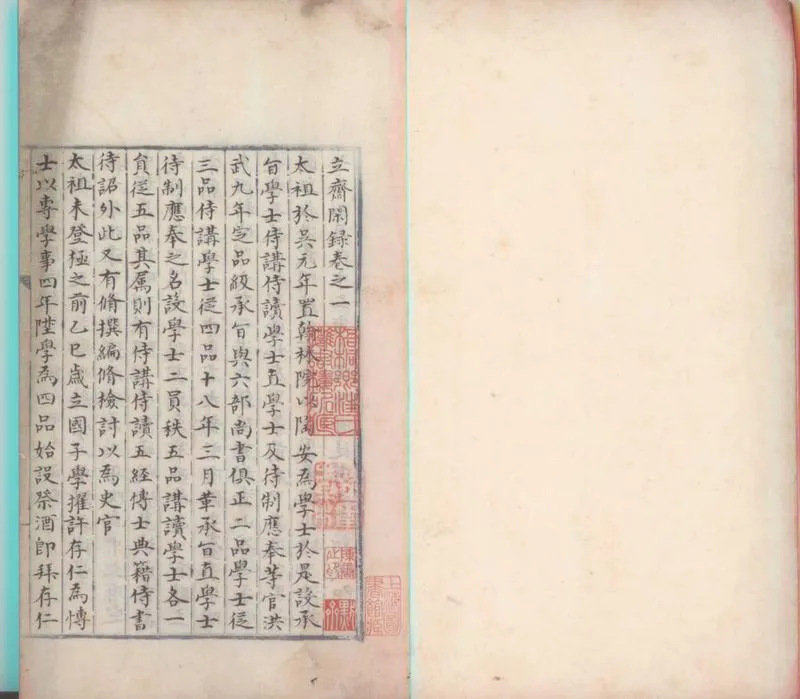 立齋閑録卷之一
太祖於吳元年置翰林院以陶安為學士於是設承
旨學士侍講侍讀學士直學士及待制應奉等官洪
武九年定品級承旨與六部尚書俱正二品學士從
三品侍講學士從四品十八年三月革承旨直學士
待制應奉之名設學士二員秩五品講讀學士各一
員從五品其属則有侍講侍讀五經博士典籍侍書
待詔外此又有脩撰編脩檢討以為史官
太祖未登極之前乙巳歲立國子學擢許存仁為博
士以專學事四年陞學為四品始設祭酒即拜存仁